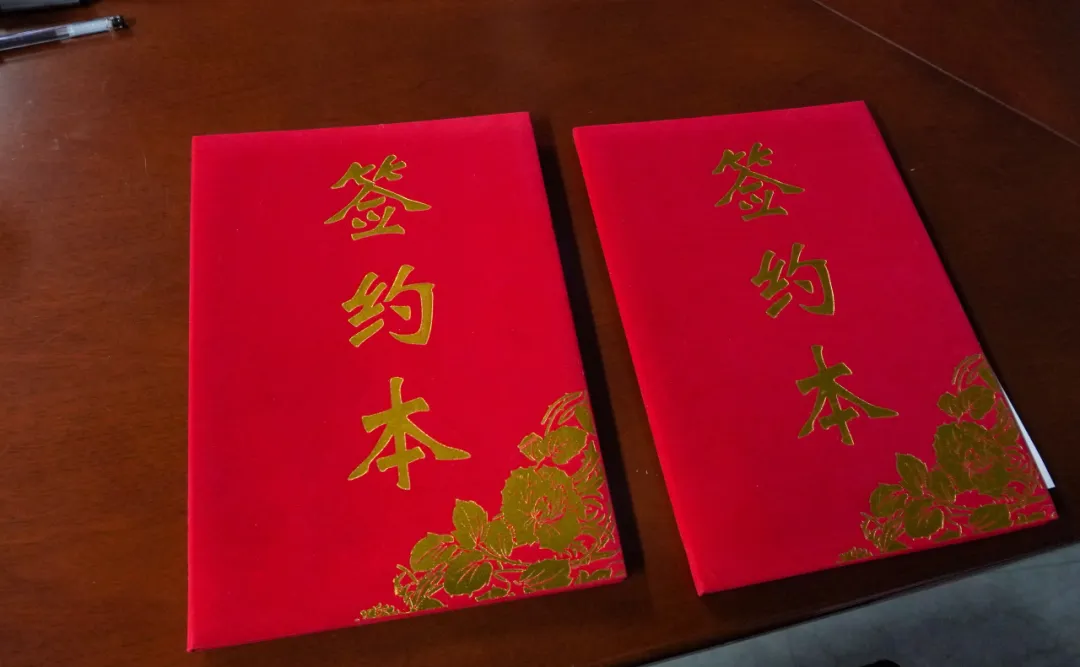 签约本
签约本